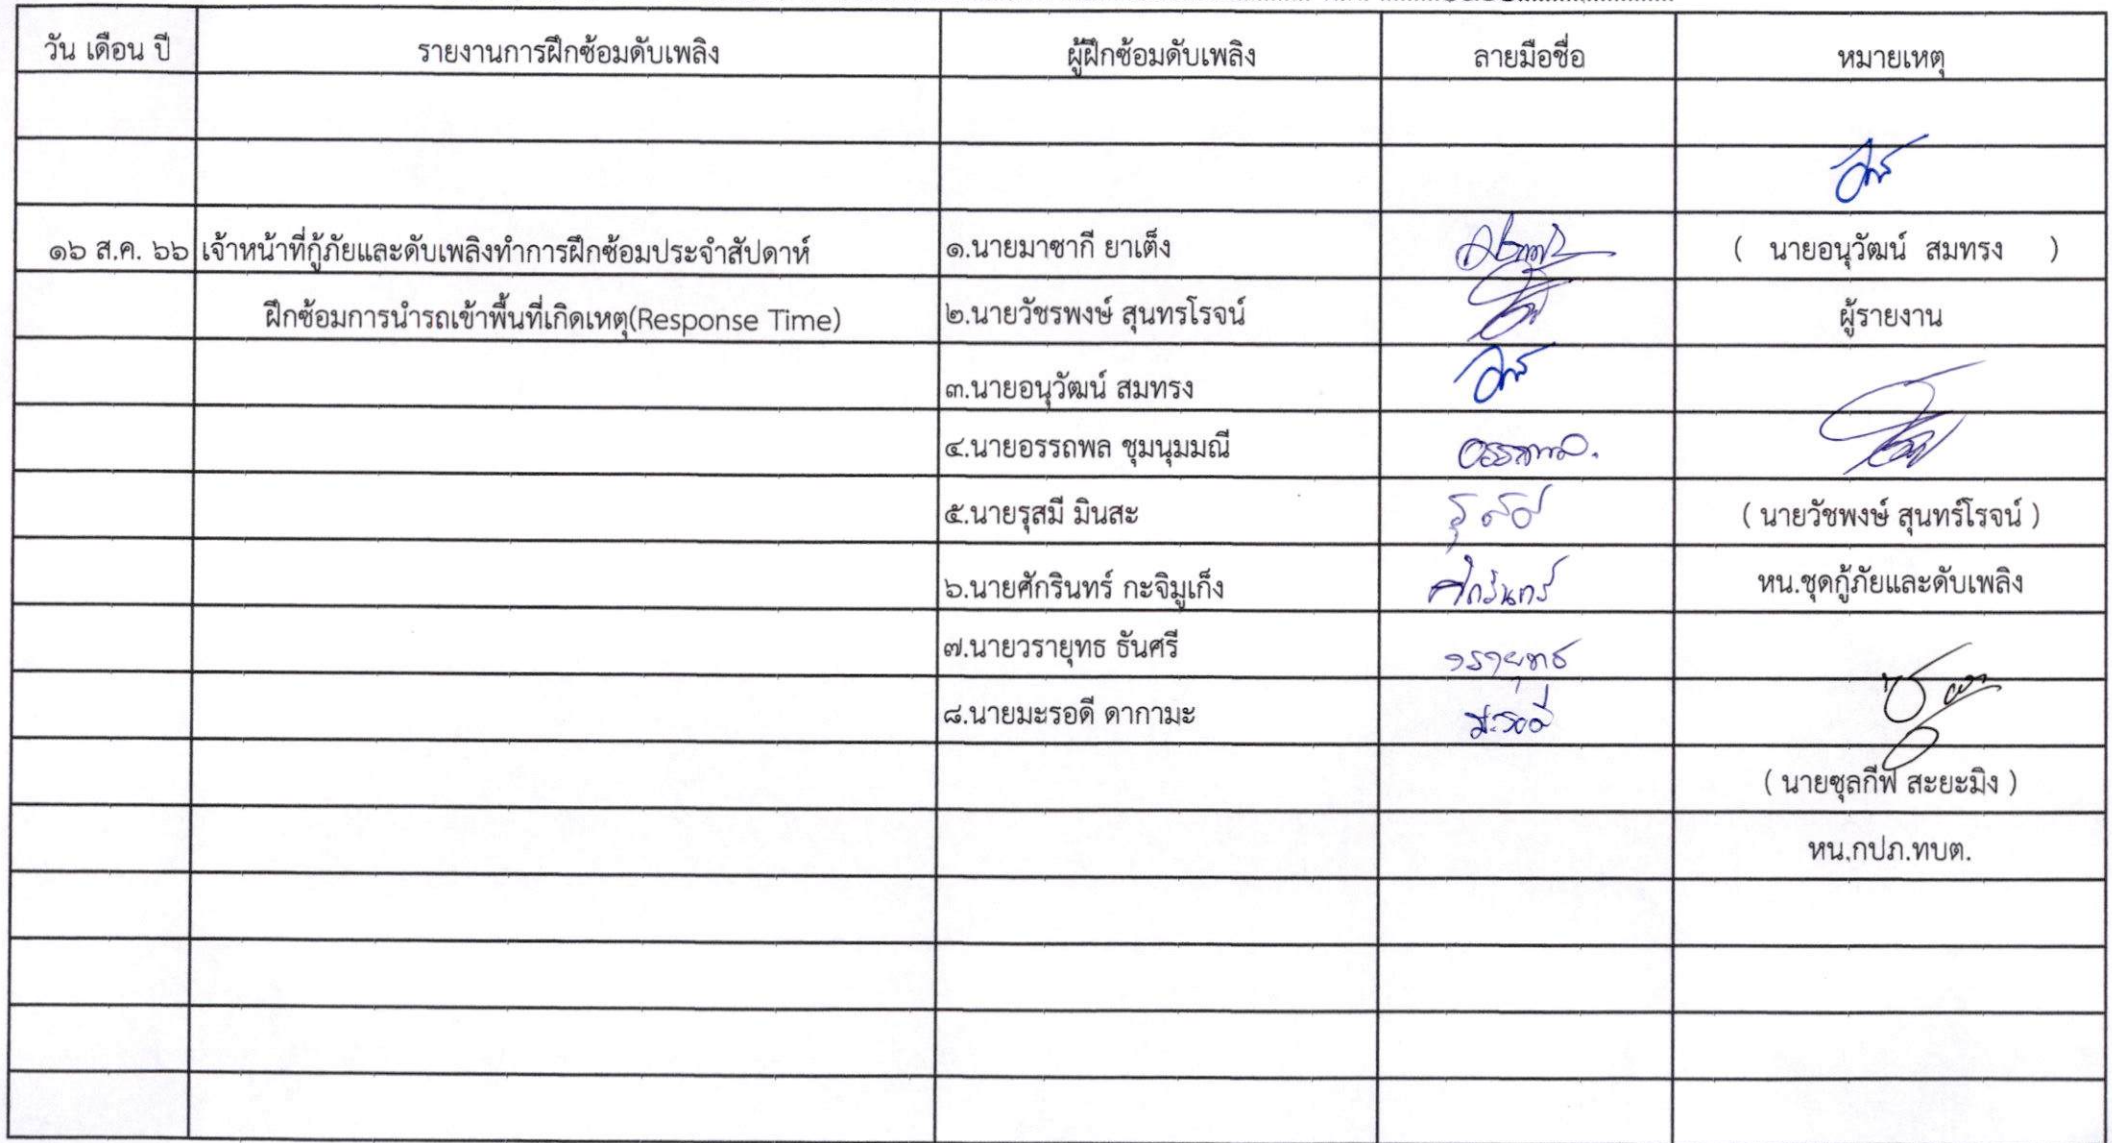 วัน เดือน ปี รายงานการฝึกซ้อมดับเพลิง ผู้ฝึกซ้อมดับเพลิง ลายมือชื่อ หมายเหตุ
๑๖ ส.ค. ๖๖ เจ้าหน้าที่กู้ภัยและดับเพลิงทำการฝึกซ้อมประจำสัปดาห์ ๑.นายมาซากี ยาเต็ง ( นายอนุวัฒน์ สมทรง )
ฝึกซ้อมการนำรถเข้าพื้นที่เกิดเหตุ(Response Time) ๒.นายวัชรพงษ์ สุนทรโรจน์ ผู้รายงาน
๓.นายอนุวัฒน์ สมทรง
๔.นายอรรถพล ชุมนุมมณี อรรถพล.
๕.นายรุสมี มินสะ รุสมี ( นายวัชพงษ์ สุนทร์โรจน์ )
๖.นายศักรินทร์ กะจิมูเก็ง ศักรินทร์ หน.ชุดกู้ภัยและดับเพลิง
๗.นายวรายุทธ ธันศรี วรายุทธ
๘.นายมะรอดี ดากามะ มะรอดี
( นายซุลกีฟ สะยะมิง )
หน.กปภ.ทบต.